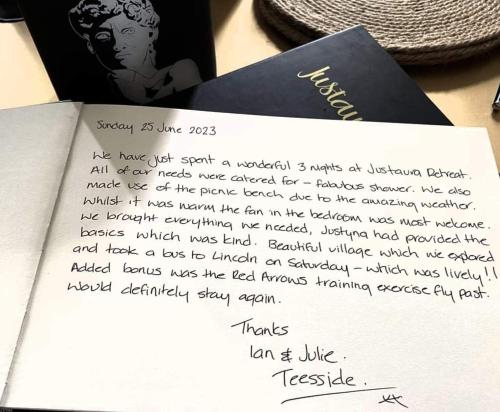 Justaura
Sunday 25 June 2023
We have just spent a wonderful 3 nights at Justaura Retreat.
All of our needs were catered for - fabulous shower. We also
made use of the picnic bench due to the amazing weather.
Whilst it was warm the fan in the bedroom was most welcome.
We brought everything we needed, Justyna had provided the
basics which was kind. Beautiful village which we explored
and took a bus to Lincoln on Saturday - which was lively!!
Added bonus was the Red Arrows training exercise fly past.
Would definitely stay again.
Thanks
Ian & Julie.
Teesside.
xx